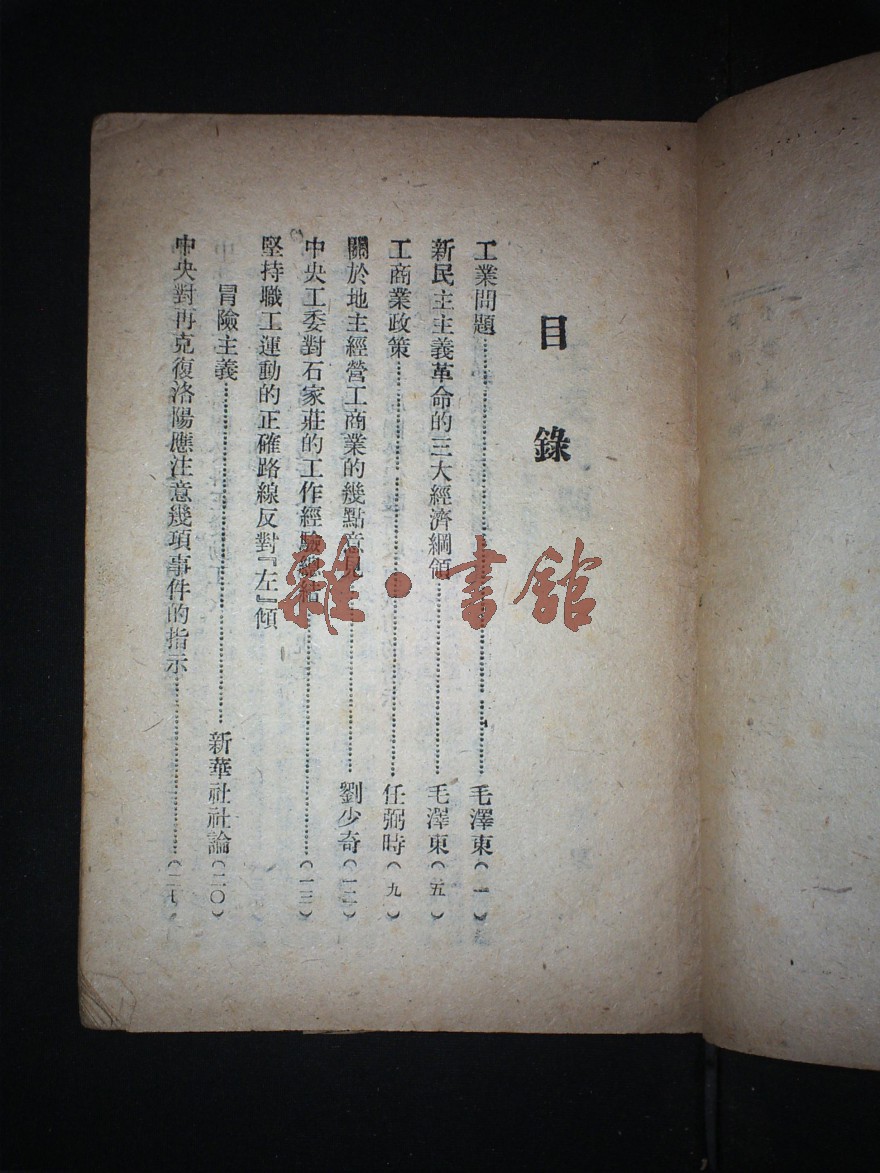 目錄
工業問題…………毛澤東(一)
新民主主義革命的三大經濟綱領…………毛澤東(五)
工商業政策…………任弼時(九)
關於地主經營工商業的幾點意見…………劉少奇(一二)
中央工委對石家莊的工作經驗總結…………(一三)
堅持職工運動的正確路線反對『左』傾
冒險主義…………新華社社論(二〇)
中央對再克復洛陽應注意幾項事件的指示…………(二七)
雜·書館